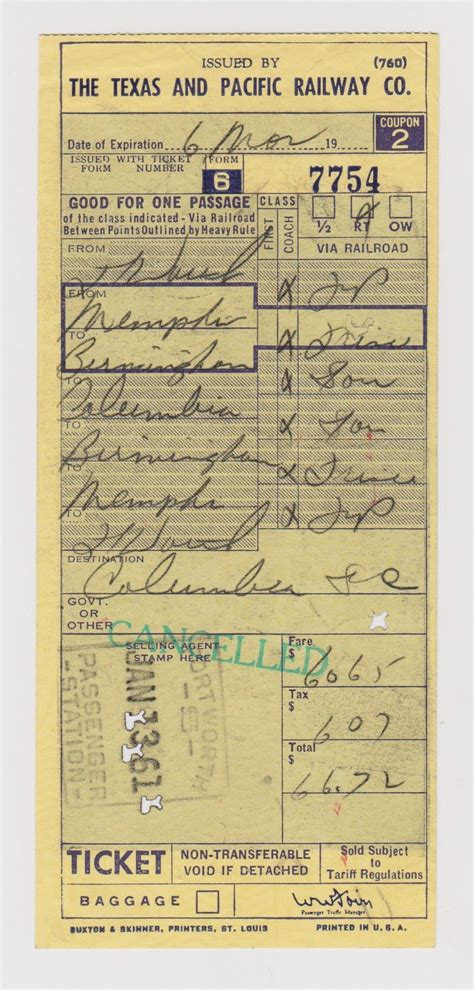 ISSUED BY (760)
THE TEXAS AND PACIFIC RAILWAY CO.
Date of Expiration 6 Mos 19
COUPON
2
ISSUED WITH TICKET
FORM NUMBER
FORM
6
7754
GOOD FOR ONE PASSAGE
of the class indicated - Via Railroad
Between Points Outlined by Heavy Rule
CLASS
FIRST
COACH
½ RT OW
VIA RAILROAD
FROM
X TP
FROM
Memphis
X Frisco
TO
Birmingham
X Sou
TO
Columbia
X Sou
TO
Birmingham
X Frisco
TO
Memphis
X TP
TO
Ft Worth
DESTINATION
Columbia SC
GOVT.
OR
OTHER
CANCELLED
SELLING AGENT
STAMP HERE
FORT WORTH
-5-
JAN 13 61
PASSENGER
-STATION-
Fare
$ 60 65
Tax
$ 607
Total
$ 66.72
TICKET
NON-TRANSFERABLE
VOID IF DETACHED
Sold Subject
to
Tariff Regulations
BAGGAGE
Passenger Traffic Manager
BUXTON & SKINNER, PRINTERS, ST. LOUIS PRINTED IN U.S.A.